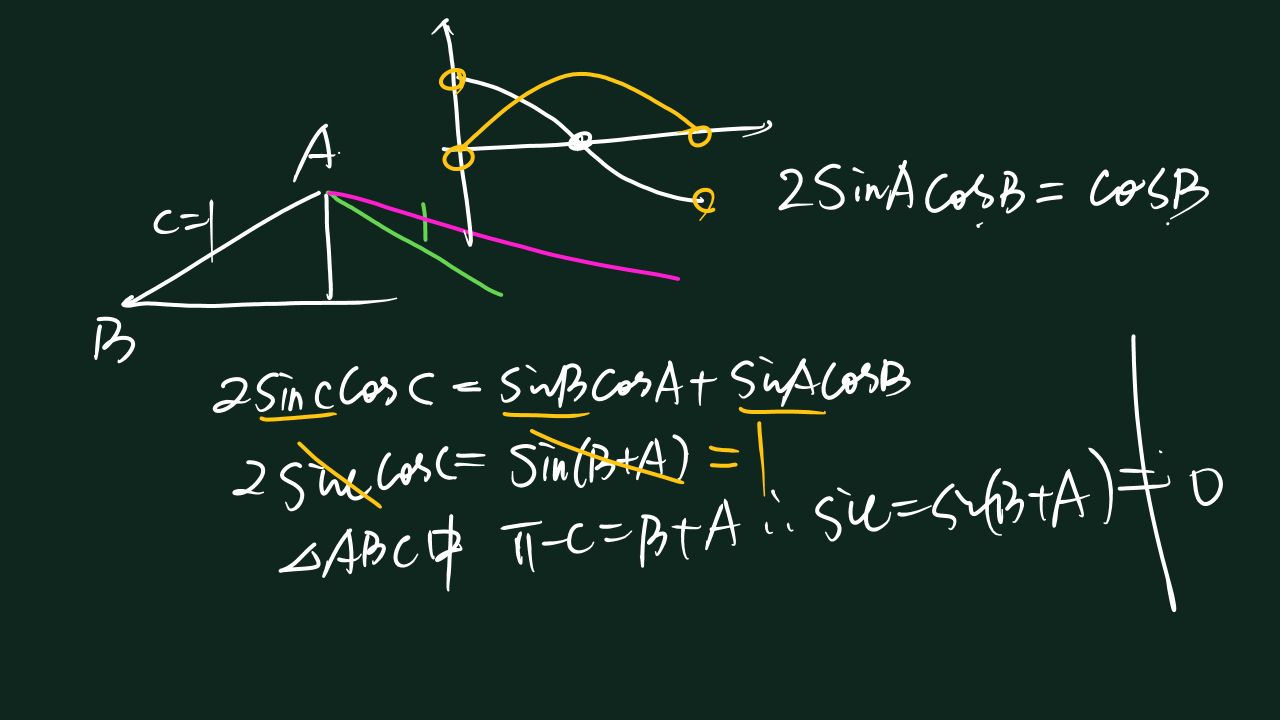 A
c=1
B
1
2sinAcosB=cosB
2sinCcosC=sinBcosA+sinAcosB
2sinCcosC=sin(B+A)=1
△ABC中 π-C=B+A ∴ sinC=sin(B+A)≠0